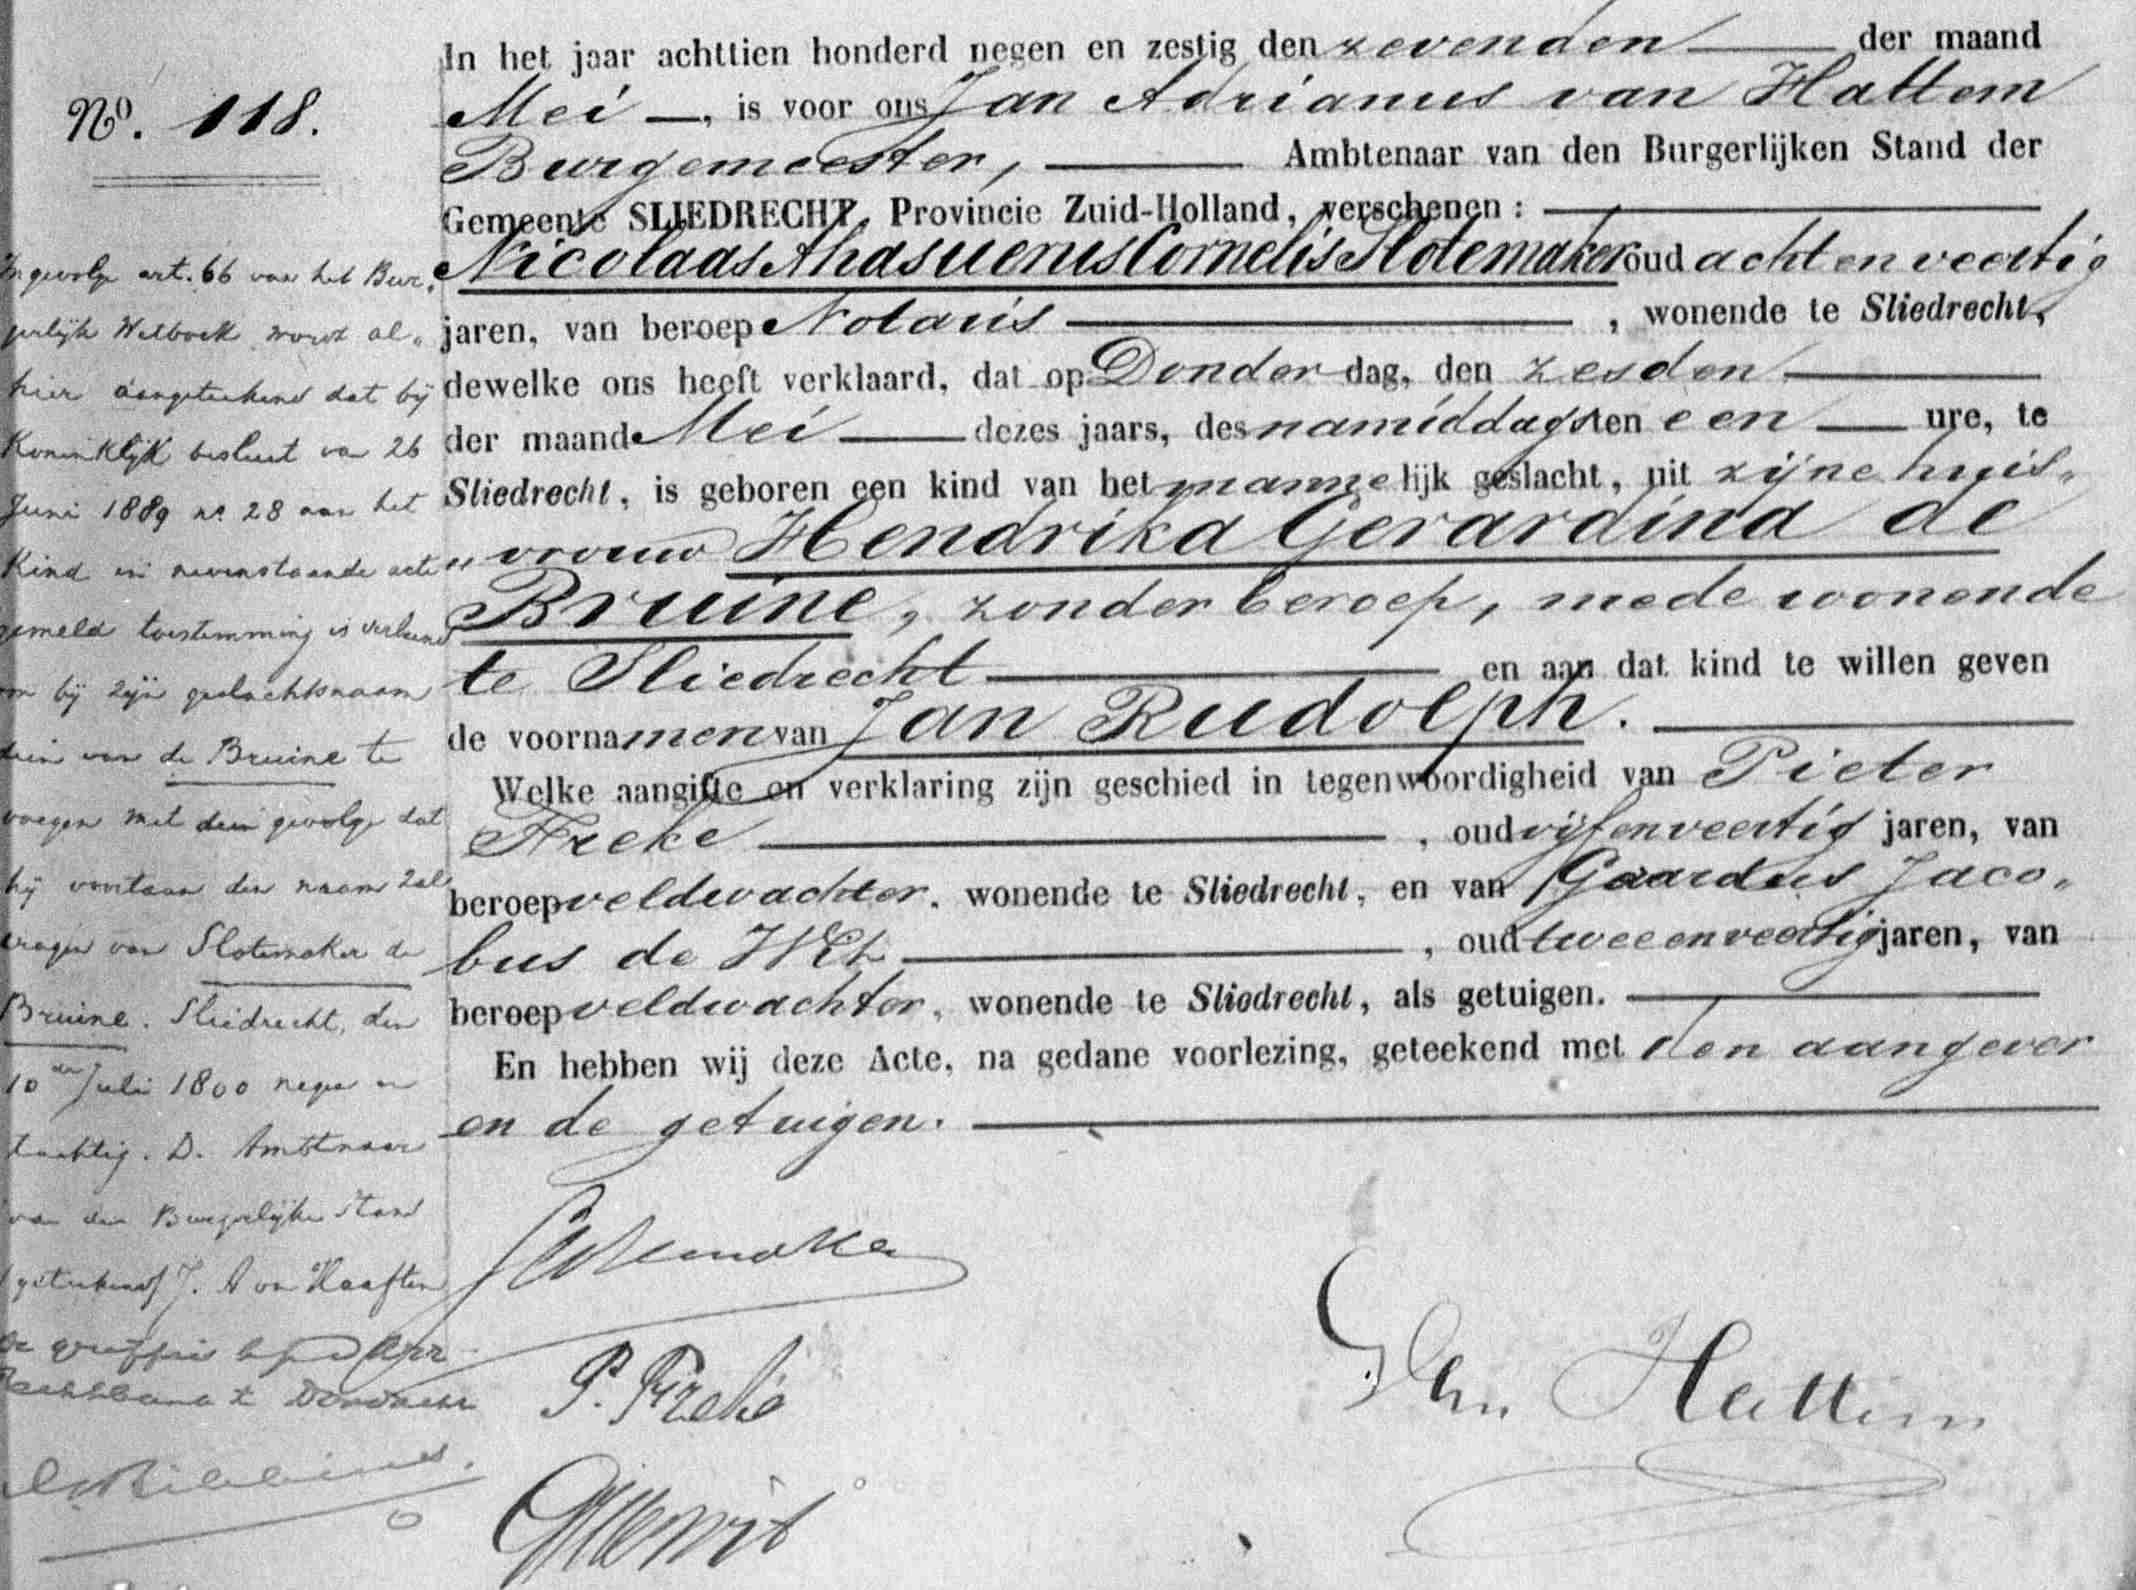 No. 118.
In het jaar achttien honderd negen en zestig den zevenden der maand
Mei, is voor ons Jan Adrianus van Hattem
Burgemeester, Ambtenaar van den Burgerlijken Stand der
Gemeente SLIEDRECHT, Provincie Zuid-Holland, verschenen:
Nicolaas Ahasuerus Cornelis Slotemaker oud acht en veertig
jaren, van beroep Notaris, wonende te Sliedrecht,
dewelke ons heeft verklaard, dat op Donderdag, den zesden
der maand Mei dezes jaars, des namiddags ten een ure, te
Sliedrecht, is geboren een kind van het mannelijk geslacht, uit zijne huis„
„vrouw Hendrika Gerardina de
Bruine, zonder beroep, mede wonende
te Sliedrecht en aan dat kind te willen geven
de voornamen van Jan Rudolph.
Welke aangifte en verklaring zijn geschied in tegenwoordigheid van Pieter
Freke, oud vijfenveertig jaren, van
beroep veldwachter, wonende te Sliedrecht, en van Gerardus Jaco„
bus de Wit, oud tweeenveertig jaren, van
beroep veldwachter, wonende te Sliedrecht, als getuigen.
En hebben wij deze Acte, na gedane voorlezing, geteekend met den aangever
en de getuigen.
Ingevolge art. 66 van het Bur„
gerlijk Wetboek wordt al„
hier aangeteekend dat bij
Koninklijk besluit van 26
Juni 1889 no 28 aan het
Kind in nevenstaande acte
gemeld toestemming is verleend
om bij zijn geslachtsnaam
dien van de Bruine te
voegen met dien gevolge dat
hij voortaan den naam zal
dragen van Slotemaker de
Bruine. Sliedrecht, den
10den Juli 1800 negen en
tachtig. D. Ambtenaar
van den Burgerlijken Stand
(geteekend) J. A van Haaften
De griffier bij de Arr
Rechtbank te Dordrecht
Slotemaker
P. Freke
GJ de Wit
van Hattem